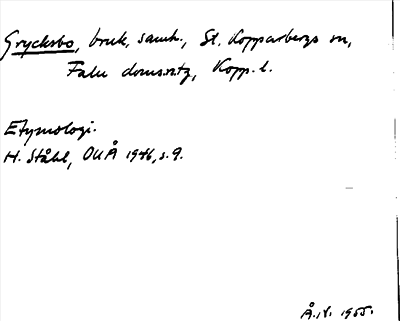 Grycksbo, bruk, samh., St. Kopparbergs sn,
Falu doms.ntz, Kopp. l.
Etymologi.
H. Ståhl, OUÅ 1946, s. 9.
Å.N. 1955.